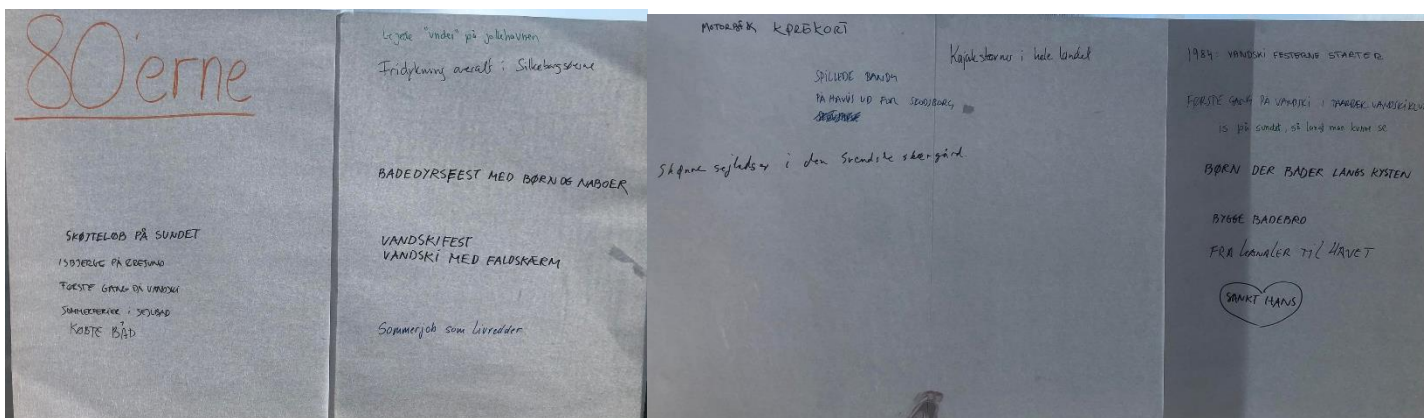 80'erne
SKØJTELØB PÅ SUNDET
ISBJERGE PÅ ØRESUND
FØRSTE GANG PÅ VANDSKI
SOMMERFERIER I SEJLBÅD
KØBTE BÅD
Legede "under" på jollehavnen
Fridykning overalt i Silkeborgsøerne
BADEDYRSFEST MED BØRN OG NABOER
VANDSKIFEST
VANDSKI MED FALDSKÆRM
Sommerjob som livredder
MOTORBÅD KØREKORT
SPILLEDE BANDY
PÅ HAVIS UD FOR SKODSBORG
Skønne sejladser i den Svenske skærgård
Kajakstævner i hele landet
1984: VANDSKI FESTERNE STARTER
FØRSTE GANG PÅ VANDSKI I TAARBÆK VANDSKIKLU
is på sundet, så langt man kunne se
BØRN DER BADER LANGS KYSTEN
BYGGE BADEBRO
FRA KANALER TIL HAVET
SANKT HANS